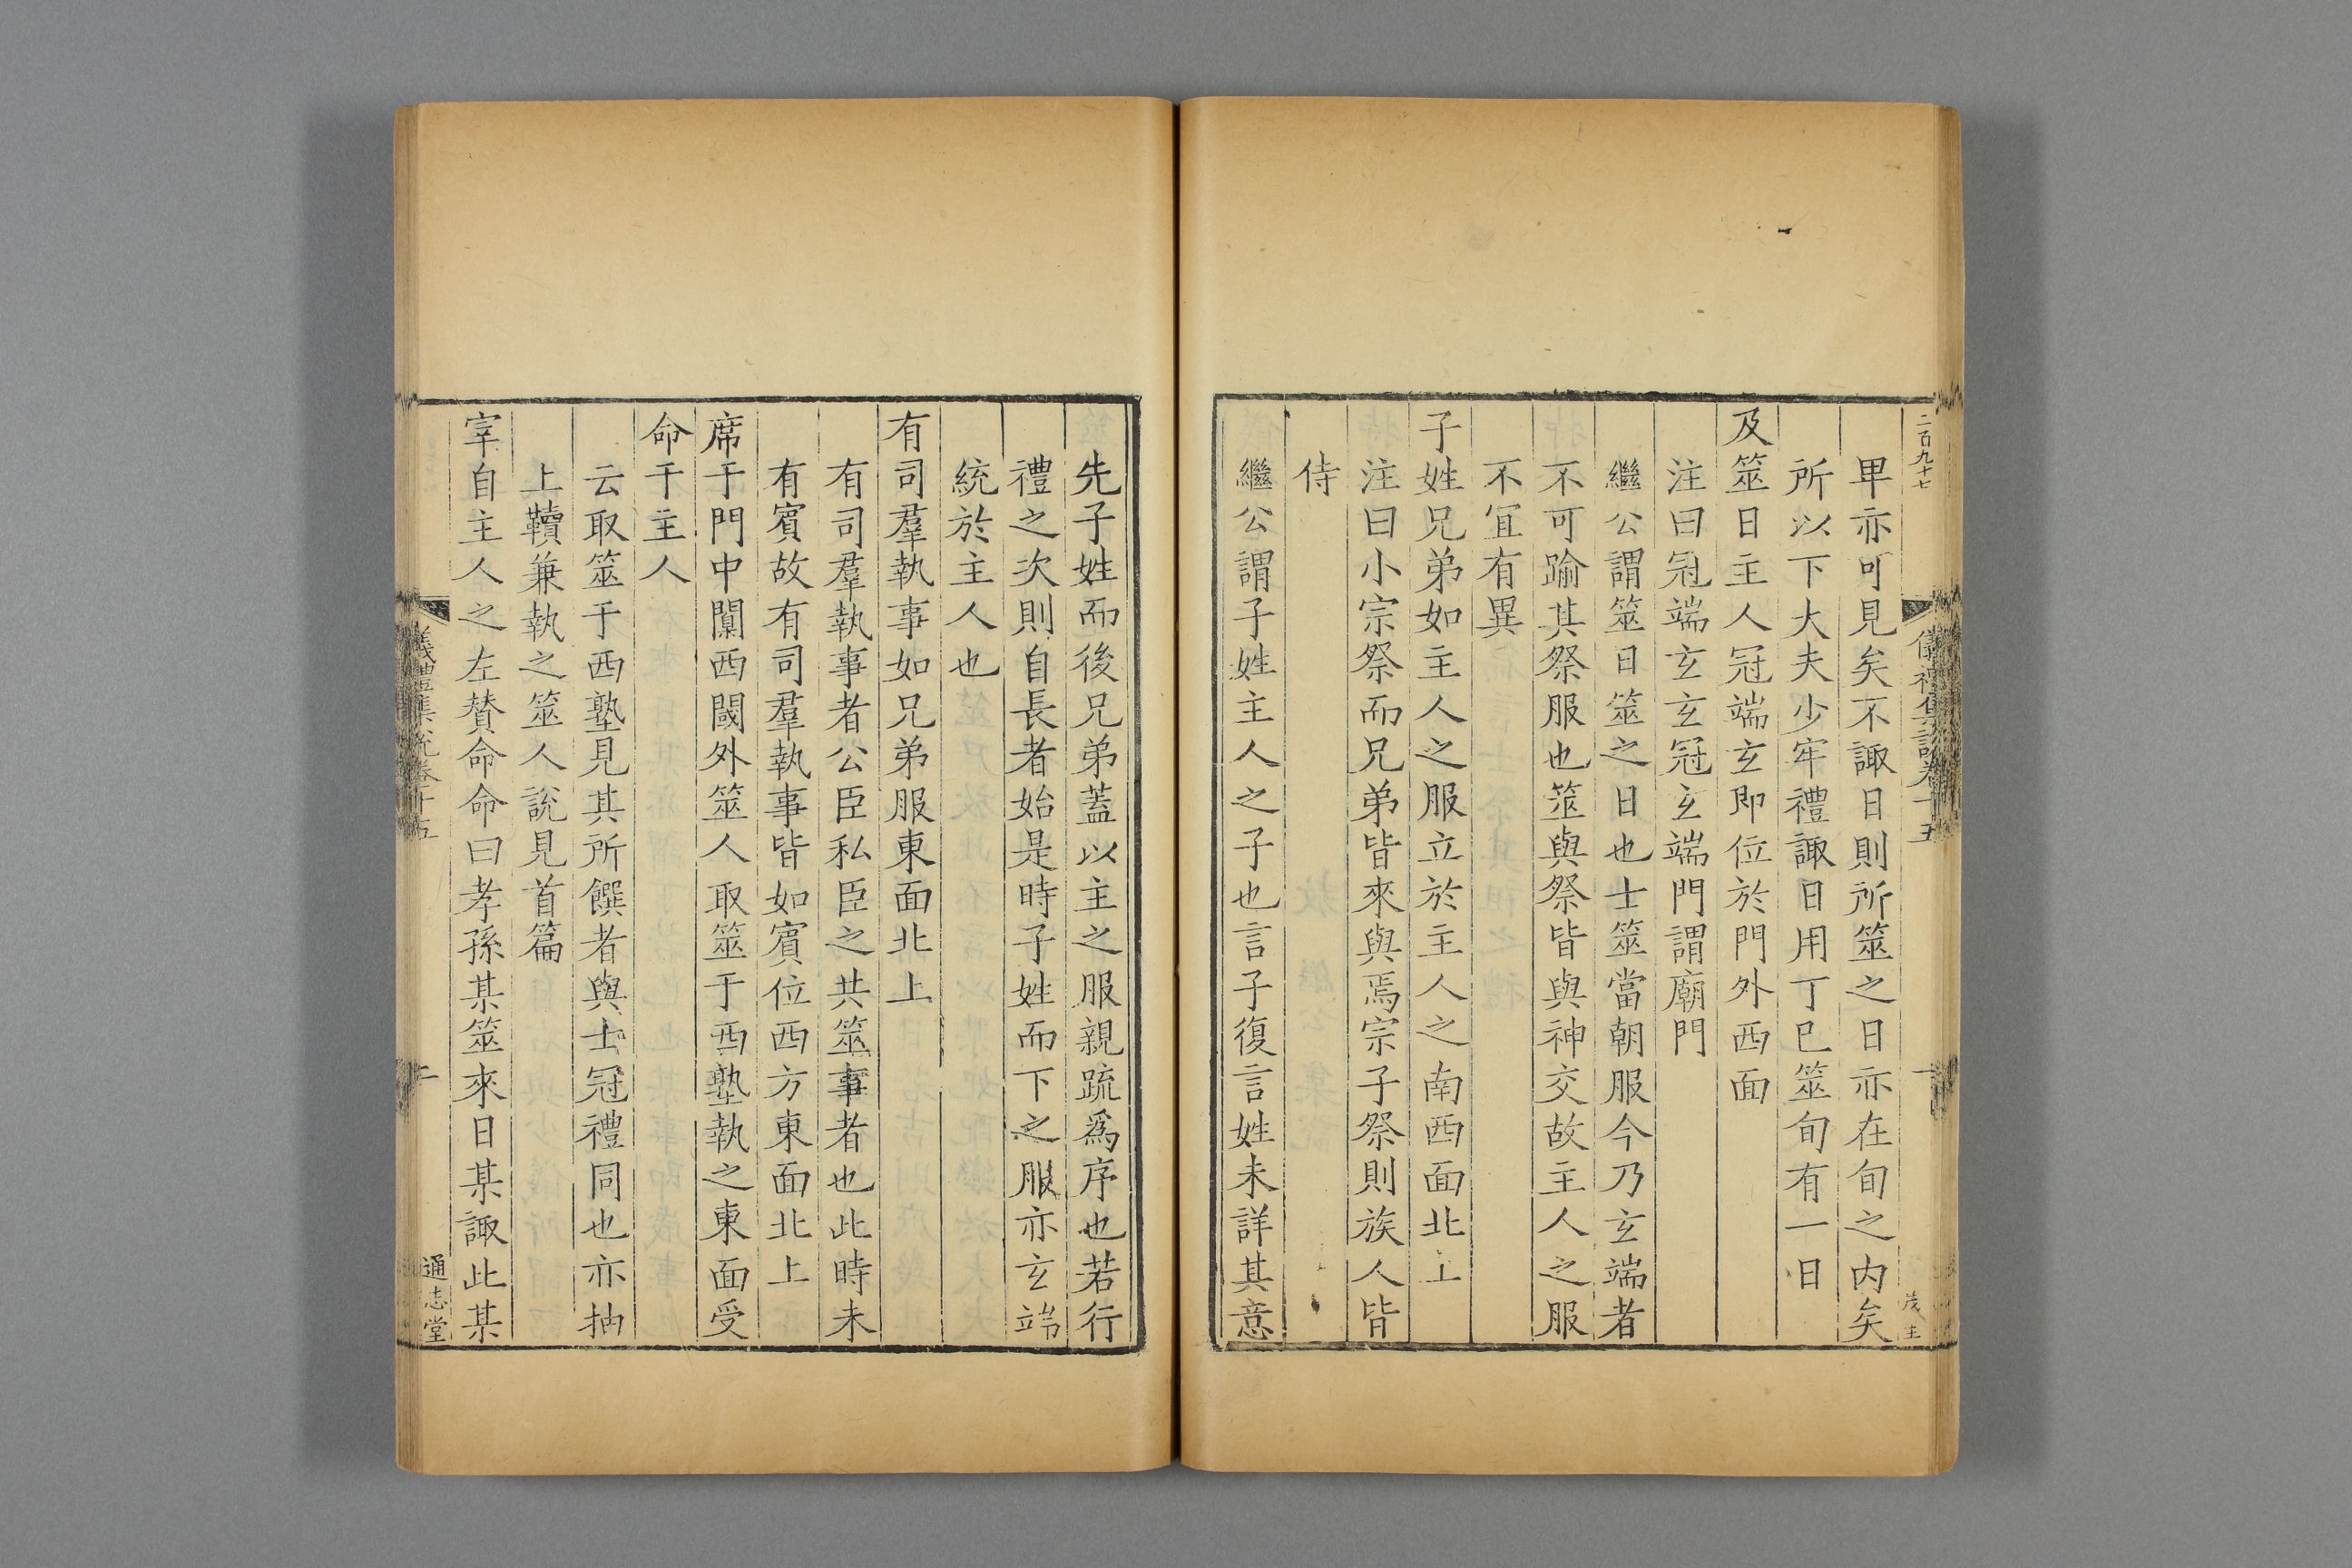 二百九十七
儀禮集說卷十五
一
茂生
卑亦可見矣不諏日則所筮之日亦在旬之内矣
所以下大夫少牢禮諏日用丁巳筮旬有一日
及筮日主人冠端玄即位於門外西面
注曰冠端玄玄冠玄端門謂廟門
繼公謂筮日筮之日也士筮當朝服今乃玄端者
不可踰其祭服也筮與祭皆與神交故主人之服
不冝有異
子姓兄弟如主人之服立於主人之南西面北上
注曰小宗祭而兄弟皆來與焉宗子祭則族人皆
侍
繼公謂子姓主人之子也言子復言姓未詳其意
先子姓而後兄弟蓋以主之服親疏爲序也若行
禮之次則自長者始是時子姓而下之服亦玄端
統於主人也
有司羣執事如兄弟服東面北上
有司羣執事者公臣私臣之共筮事者也此時未
有賓故有司羣執事皆如賓位西方東面北上
席于門中闑西閾外筮人取筮于西塾執之東面受
命于主人
云取筮于西塾見其所饌者與士冠禮同也亦抽
上韇兼執之筮人說見首篇
宰自主人之左贊命命曰孝孫某筮來日某諏此某
儀禮集說卷十五
通志堂